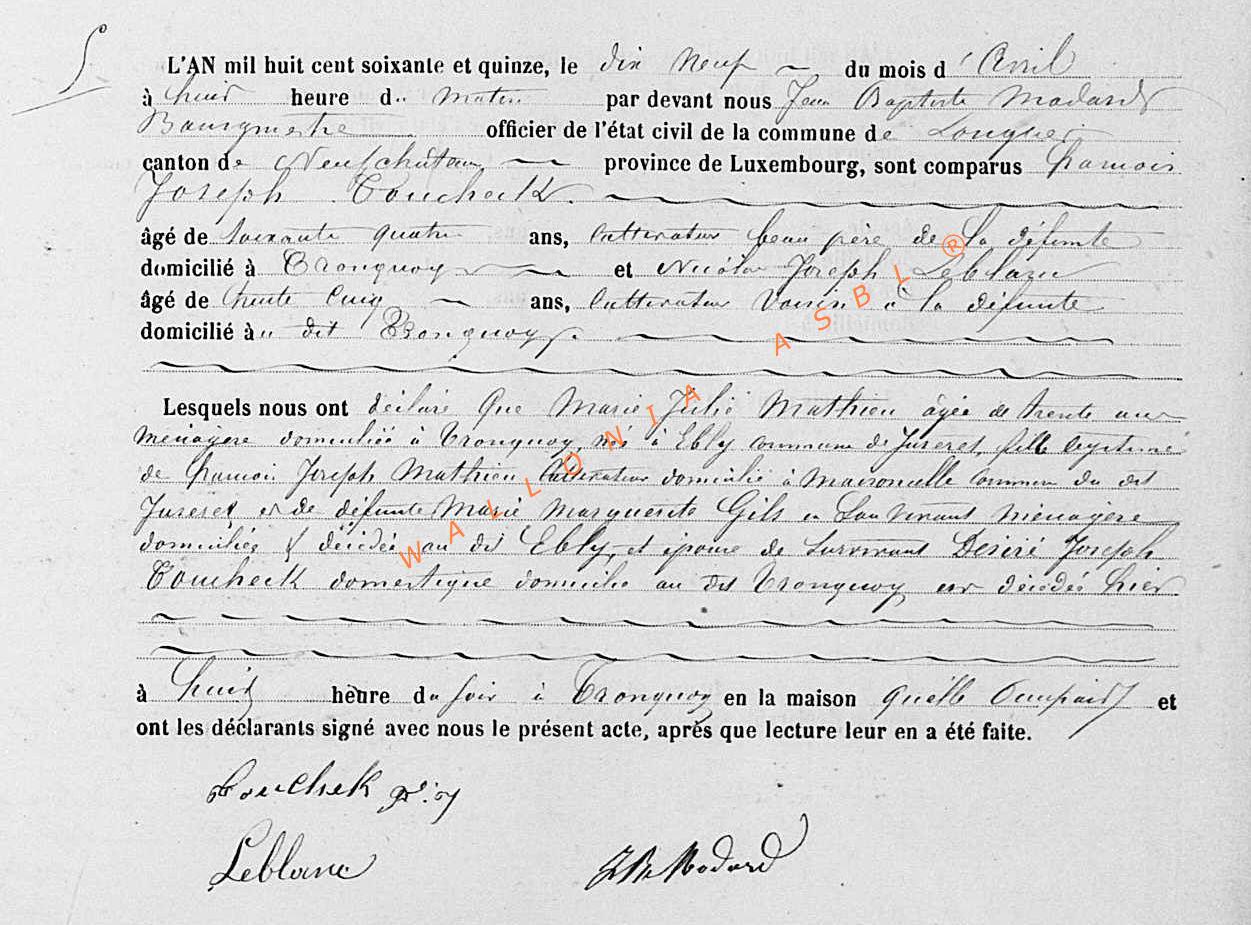 5
L'AN mil huit cent soixante et quinze, le dix neuf du mois d'Avril
à huit heure du matin par devant nous Jean Baptiste Modard
Bourgmestre officier de l'état civil de la commune de Longlier
canton de Neufchâteau province de Luxembourg, sont comparus francois
Joseph Toucheck
âgé de soixante quatre ans, cultivateur beau père de la défunte
domicilié à Tronquoy et Nicolas Joseph Leblanc
âgé de trente cinq ans, cultivateur voisin à la défunte
domicilié au dit Tronquoy.
Lesquels nous ont déclaré que Marie Julie Mathieu âgée de trente ans
ménagère domiciliée à Tronquoy, née à Ebly commune de Juseret, fille légitime
de francois Joseph Mathieu cultivateur domicilié à Maisoncelle commune du dit
Juseret et de défunte Marie Marguerite Gils en son vivant ménagère
domiciliée & décédée au dit Ebly, et épouse de survivant Désiré Joseph
Toucheck domestique domicilié au dit Tronquoy est décédée hier
à huit heure du soir à Tronquoy en la maison qu'elle occupait et
ont les déclarants signé avec nous le présent acte, après que lecture leur en a été faite.
Touchek
Leblanc JB Modard
WALLONIA ASBL ®